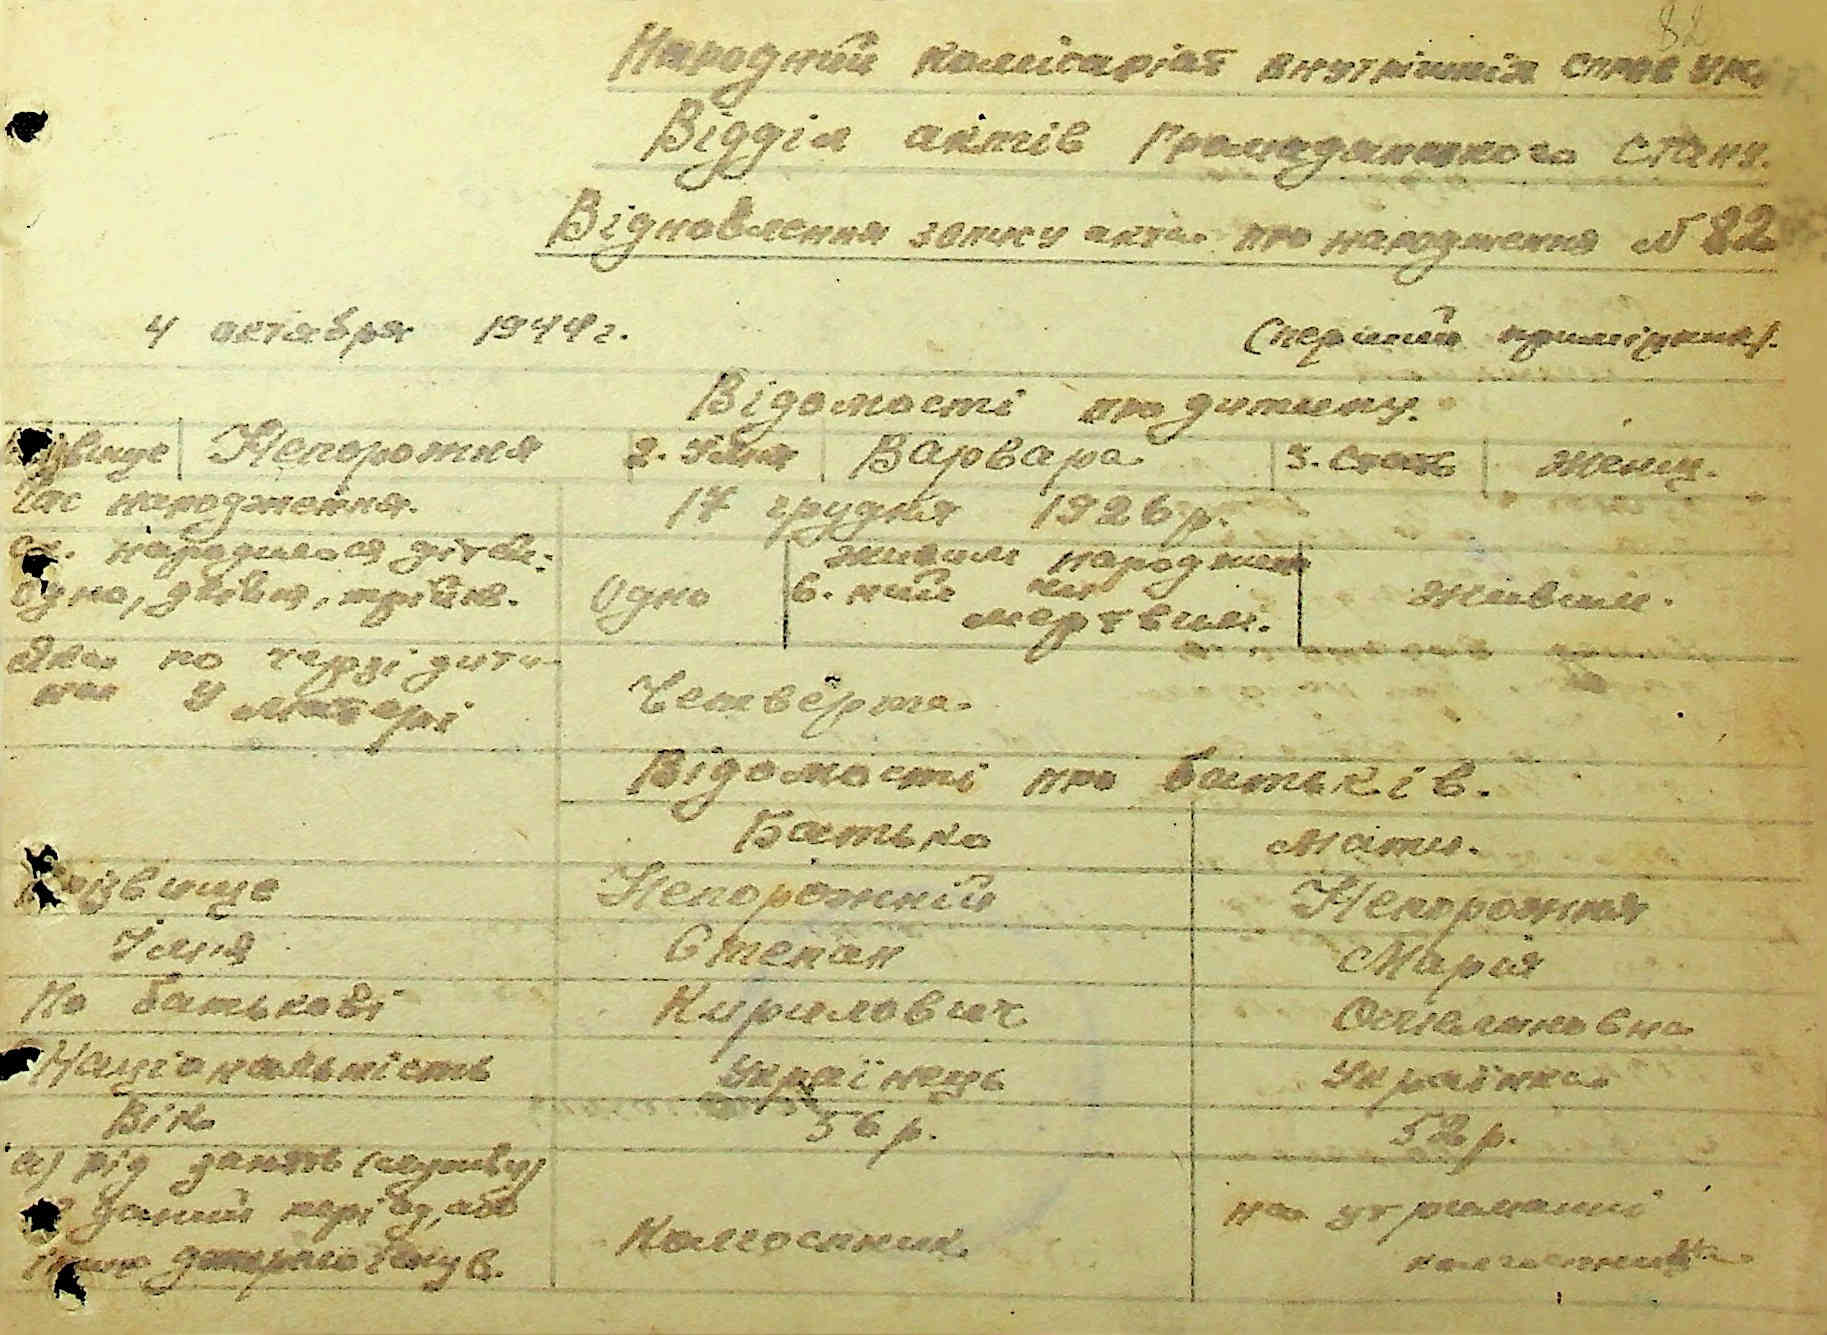 82
Народний комісаріат внутрішніх справ УРС
Відділ актів Громадянського стану.
Відновлення запису акта про народження № 82
4 октября 1944 г.
(перший примірник).
Відомості про дитину.
Прізвище Непорожня 2. Імя Варвара 3. Стать Женщ.
Час народження. 17 грудня 1926 р.
ск. народилося дітей:
одно, двійня, трійня. Одно 6. живим народжений чи мертвим. Живим.
Яка по черзі дити-
на у матері Четверта.
Відомості про батьків.
Батько Мати.
Прізвище Непорожній Непорожня
Імя Степан Марія
По батькові Кирилович
Національність Українець Українка
Вік 56 р. 52 р.
а) рід занять (службу)
на даний період, або
інше джерело існув. Колгоспник. на утриманні
колгоспника